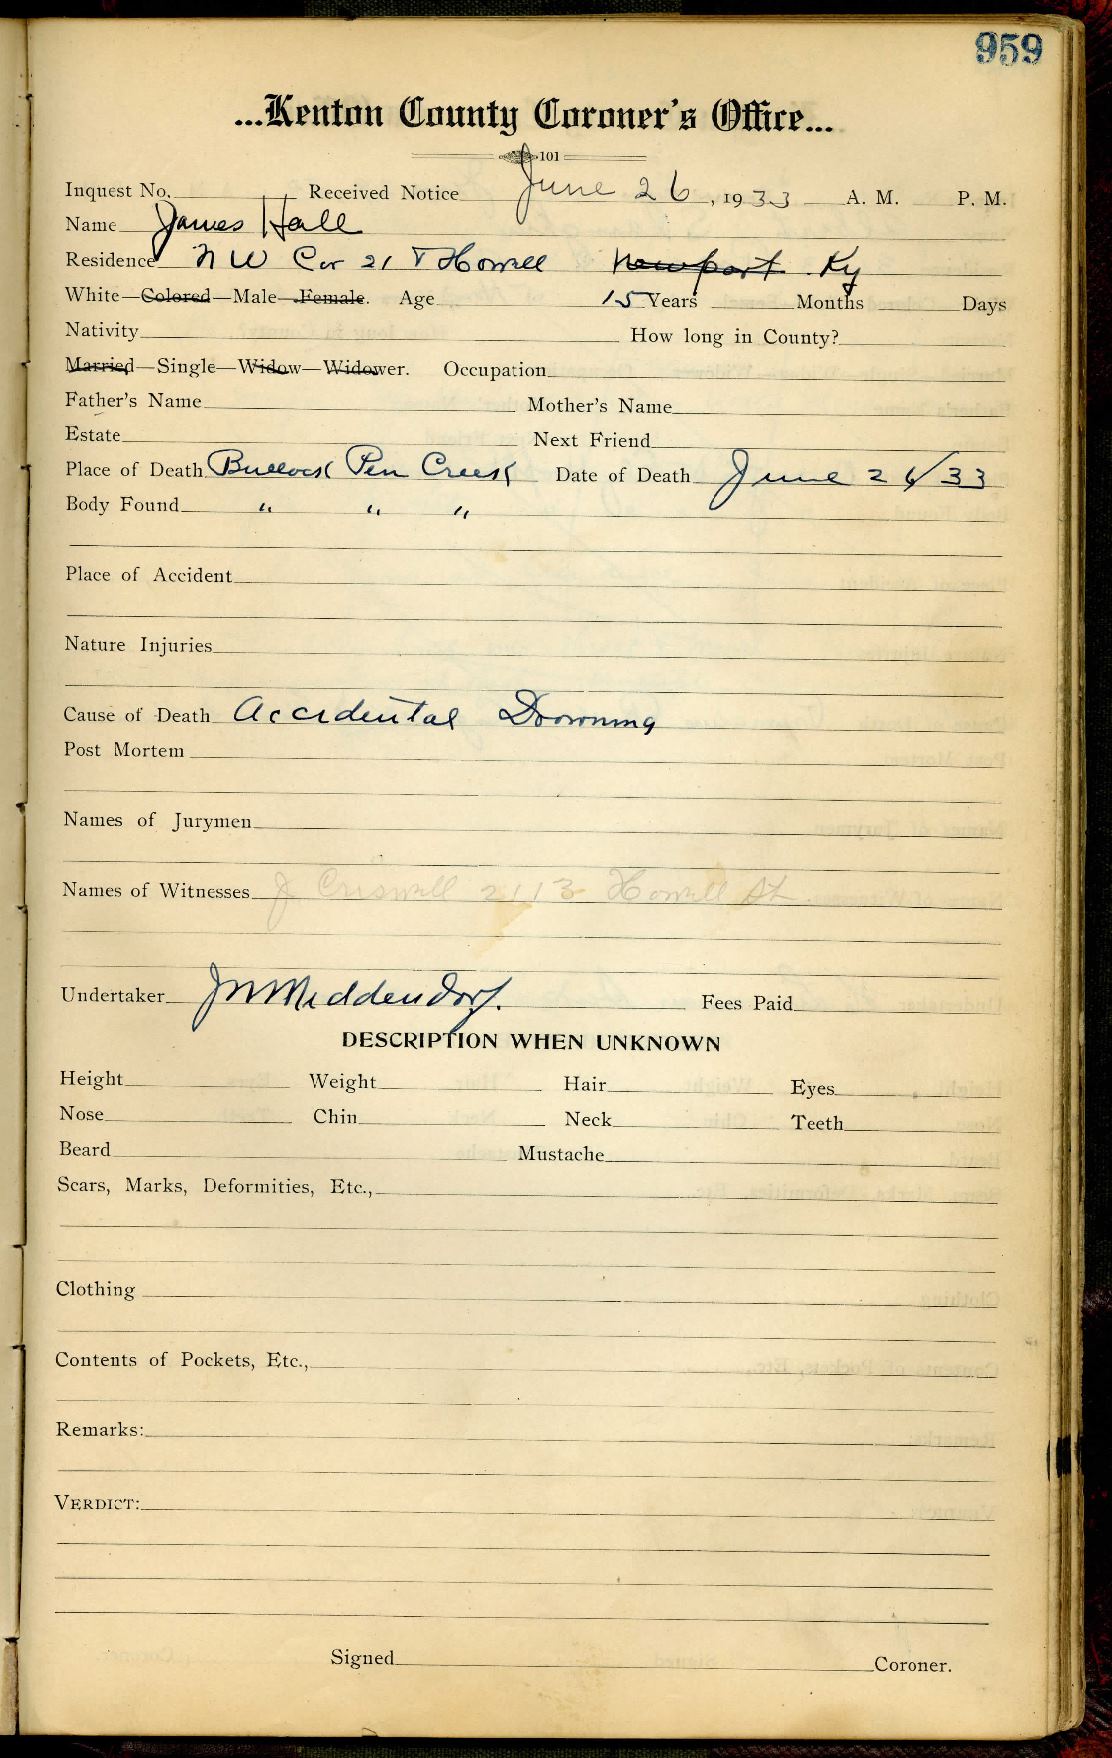 959
...Kenton County Coroner's Office...
101
Inquest No. Received Notice June 26, 1933 A. M. P. M.
Name James Hall
Residence N W Cor 21 & Howell Newport Ky
White—Colored—Male—Female. Age 15 Years Months Days
Nativity How long in County?
Married—Single—Widow—Widower. Occupation
Father's Name Mother's Name
Estate Next Friend
Place of Death Bullock Pen Creek Date of Death June 26/33
Body Found " " "
Place of Accident
Nature Injuries
Cause of Death Accidental Drowning
Post Mortem
Names of Jurymen
Names of Witnesses J Criswell 2113 Howell St.
Undertaker J N Middendorf. Fees Paid
DESCRIPTION WHEN UNKNOWN
Height Weight Hair Eyes
Nose Chin Neck Teeth
Beard Mustache
Scars, Marks, Deformities, Etc.,
Clothing
Contents of Pockets, Etc.,
Remarks:
VERDICT:
Signed Coroner.